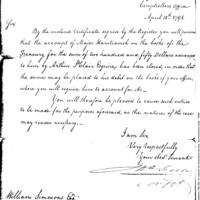 Comptrollers Office
April 18th 1794
Sir
By the enclosed Certificate signed by the Register you will perceive
that the account of Major Hamtramck on the books of the
Treasury for the sum of two hundred and fifty Dollars advanced
to him by Arthur St Clair Esquire has been closed, in order that
the same may be placed to his debit on the books of your office,
where you will require him to account for it.
You will therefore be pleased to cause such entries
to be made for the purposes aforesaid, as the nature of the case
may render necessary.
I am Sir
Very respectfully
Your obed Servant
William Simmons Esq